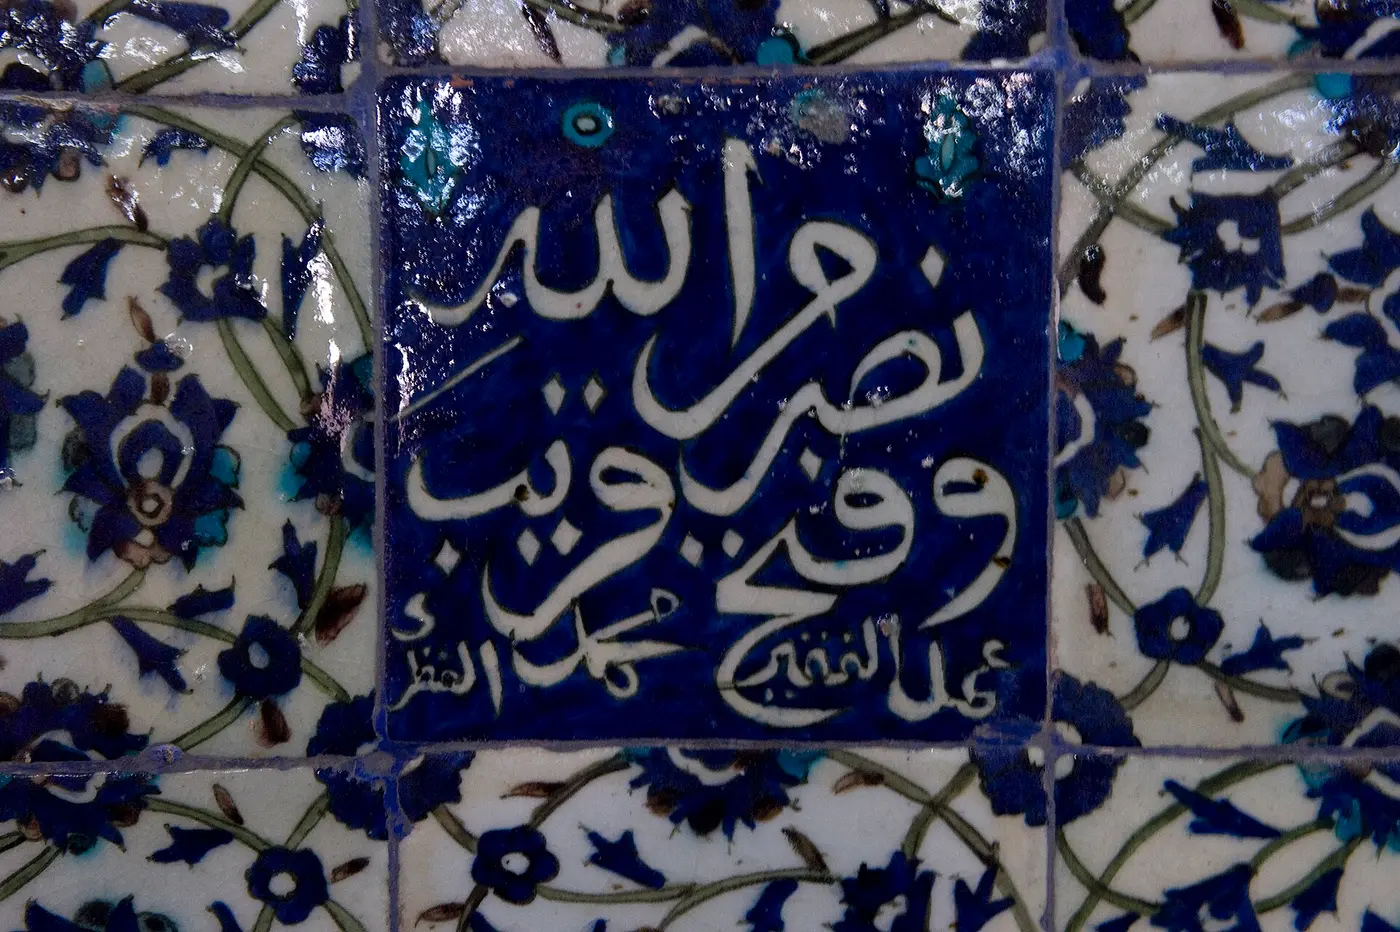 نصر من الله
وفتح قريب
عمل الفقير محمد